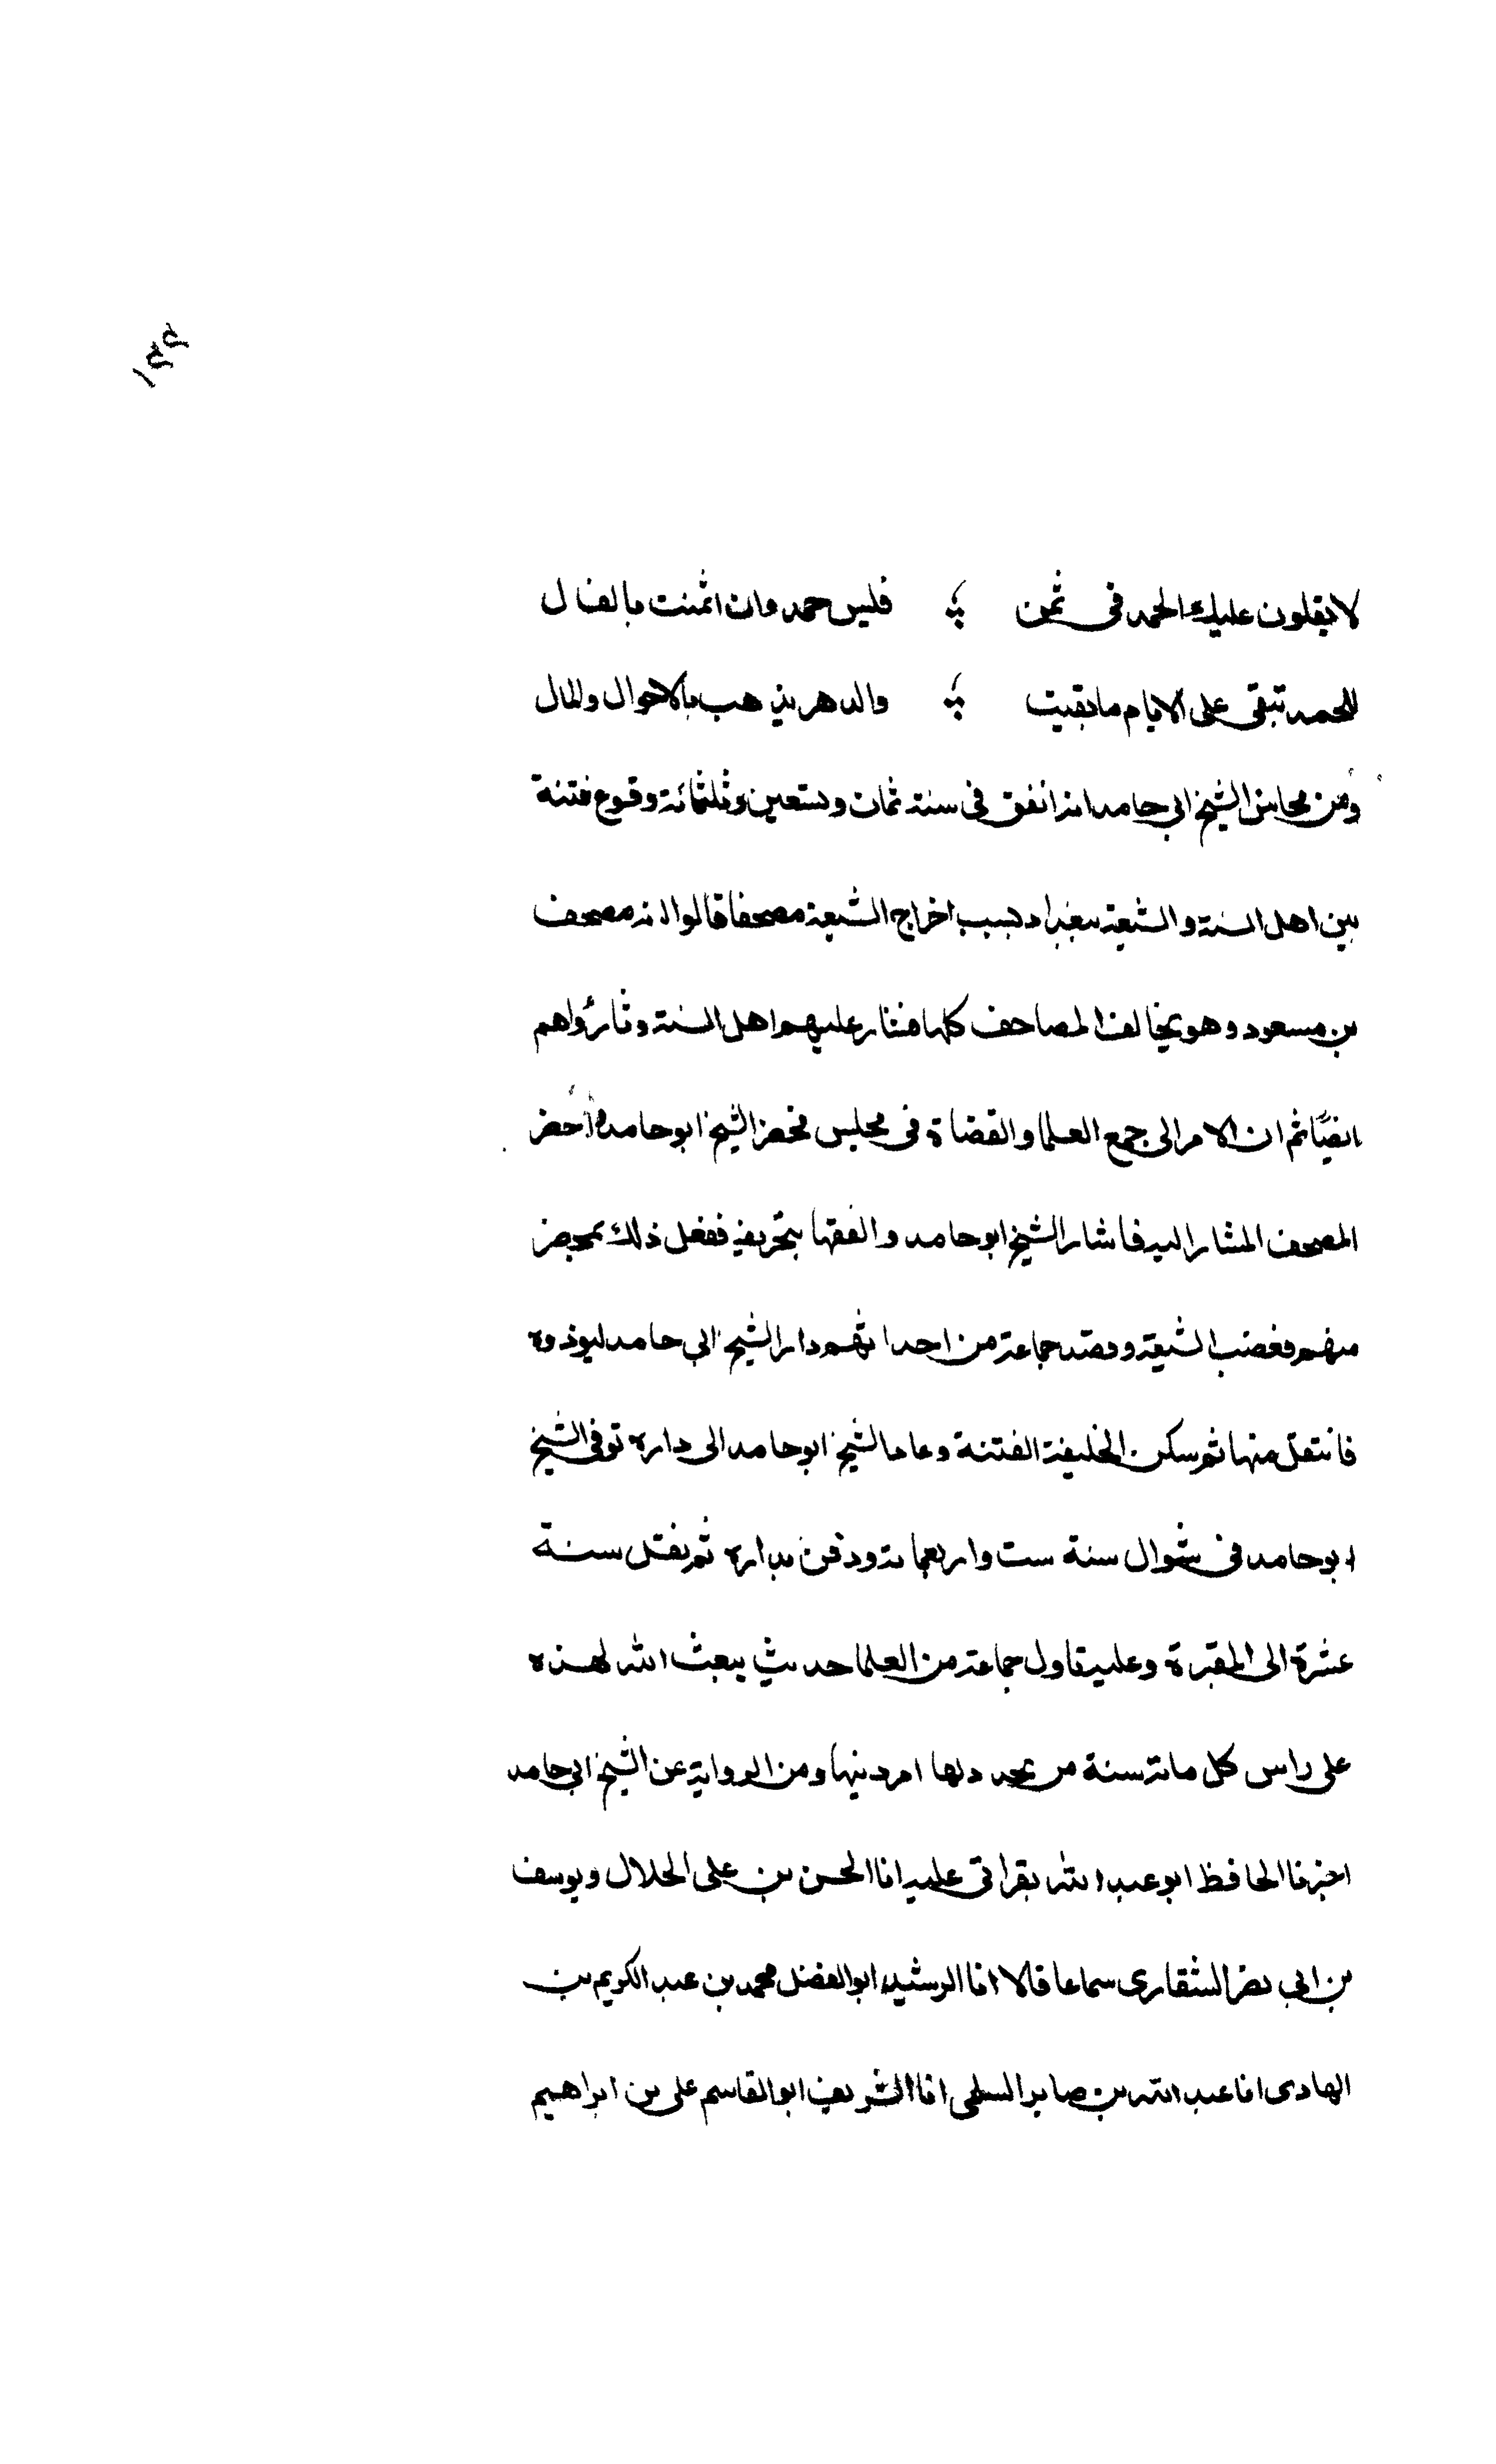 لا يغلون عليك الحمد في ثمن ؛ فليس حمد وان اثمنت بالغال
الحمد تبقى على الايام ما بقيت ؛ والدهر يذهب بالاحوال والمال
ومن محاسن الشيخ ابي حامد انه اتفق في سنة ثمان وتسعين وثلثمائة وقوع فتنة
بين اهل السنة والشيعة ببغداد بسبب اخراج الشيعة مصحفا قالوا انه مصحف
بن مسعود وهو يخالف المصاحف كلها فثار عليهم اهل السنة وثاروا هم
ايضًا ثم ان الامر الى جمع العلما والقضاة في مجلس فحضر الشيخ ابو حامد واحضر
المصحف المشار اليه فاشار الشيخ ابو حامد والفقها بتحريفه ففعل ذلك بمحضر
منهم فغضب الشيعة وقصد جماعة من احداثهم دار الشيخ ابي حامد ليوذوه
فانتقل منها ثم سكن الخليفة الفتنة وعاد الشيخ ابو حامد الى داره توفي الشيخ
ابو حامد في شوال سنة ست واربعماية ودفن بداره ثم نقل سنة
عشرة الى المقبرة وعليه تاول جماعة من العلما حديث يبعث الله لهذه
على راس كل ماية سنة من يجدد لها امر دينها ومن الرواية عن الشيخ ابي حامد
اخبرنا الحافظ ابو عبد الله بقراتي عليه انا الحسن بن على الخلال ويوسف
بن ابي نصر الشقارى سماعا قالا انا الرشيد ابو الفضل محمد بن عبد الكريم بن
الهادى انا عبد الله بن صابر السلمى انا الشريف ابو القاسم على بن ابراهيم